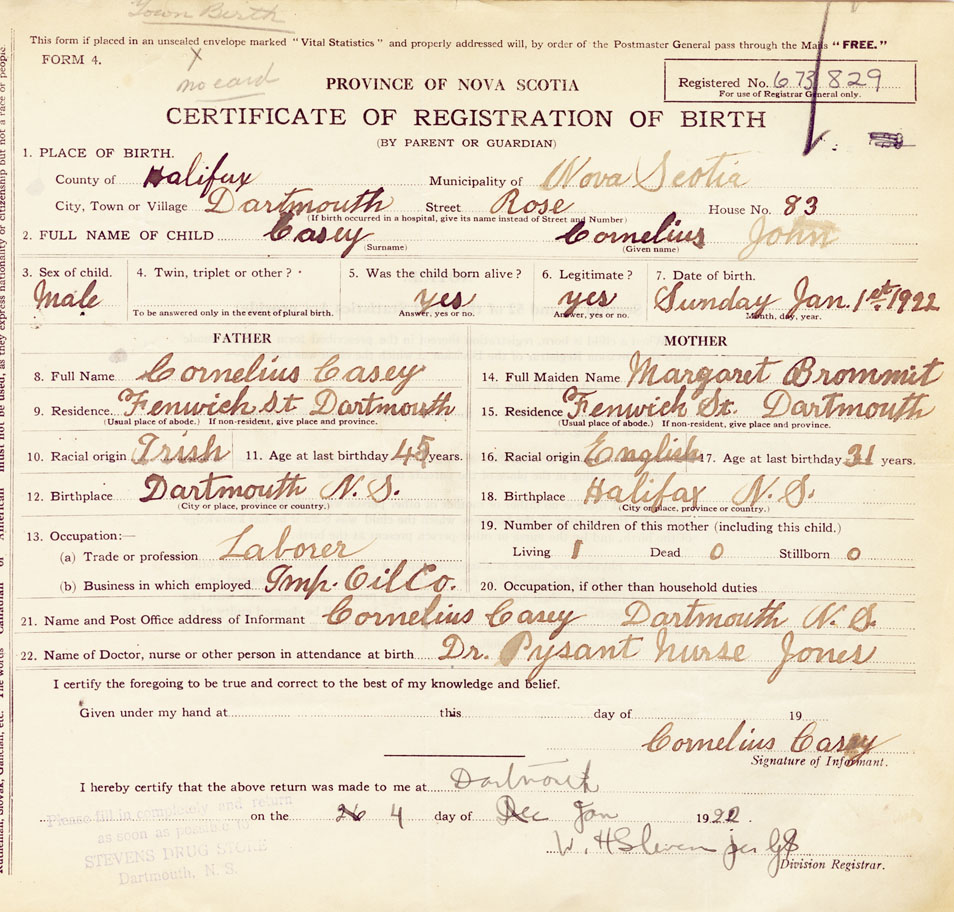 Town Birth
This form if placed in an unsealed envelope marked "Vital Statistics" and properly addressed will, by order of the Postmaster General pass through the Mails "FREE."
FORM 4.
X
no card
PROVINCE OF NOVA SCOTIA
Registered No. 673829
For use of Registrar General only.
CERTIFICATE OF REGISTRATION OF BIRTH
(BY PARENT OR GUARDIAN)
1. PLACE OF BIRTH.
County of Halifax Municipality of Nova Scotia
City, Town or Village Dartmouth Street Rose House No. 83
(If birth occurred in a hospital, give its name instead of Street and Number)
2. FULL NAME OF CHILD Casey Cornelius John
(Surname) (Given name)
3. Sex of child. 4. Twin, triplet or other? 5. Was the child born alive? 6. Legitimate? 7. Date of birth.
Male yes yes Sunday Jan. 1st 1922
To be answered only in the event of plural birth. Answer, yes or no. Answer, yes or no. Month, day, year.
FATHER MOTHER
8. Full Name Cornelius Casey 14. Full Maiden Name Margaret Brommit
9. Residence. Fenwich St Dartmouth 15. Residence Fenwich St. Dartmouth
(Usual place of abode.) If non-resident, give place and province. (Usual place of abode.) If non-resident, give place and province.
10. Racial origin Irish 11. Age at last birthday 45 years. 16. Racial origin English 17. Age at last birthday 31 years.
12. Birthplace Dartmouth N.S. 18. Birthplace Halifax N.S.
(City or place, province or country.) (City or place, province or country.)
13. Occupation:— 19. Number of children of this mother (including this child.)
(a) Trade or profession Laborer Living 1 Dead 0 Stillborn 0
(b) Business in which employed Imp. Oil Co. 20. Occupation, if other than household duties
21. Name and Post Office address of Informant Cornelius Casey Dartmouth N.S.
22. Name of Doctor, nurse or other person in attendance at birth Dr. Pysant Nurse Jones
I certify the foregoing to be true and correct to the best of my knowledge and belief.
Given under my hand at this day of 19
Cornelius Casey
Signature of Informant.
I hereby certify that the above return was made to me at Dartmouth
on the 26 4 day of Dec Jan 1922.
W. H Steven per
Division Registrar.
Please fill in completely and return
as soon as possible to
STEVENS DRUG STORE
Dartmouth, N. S.